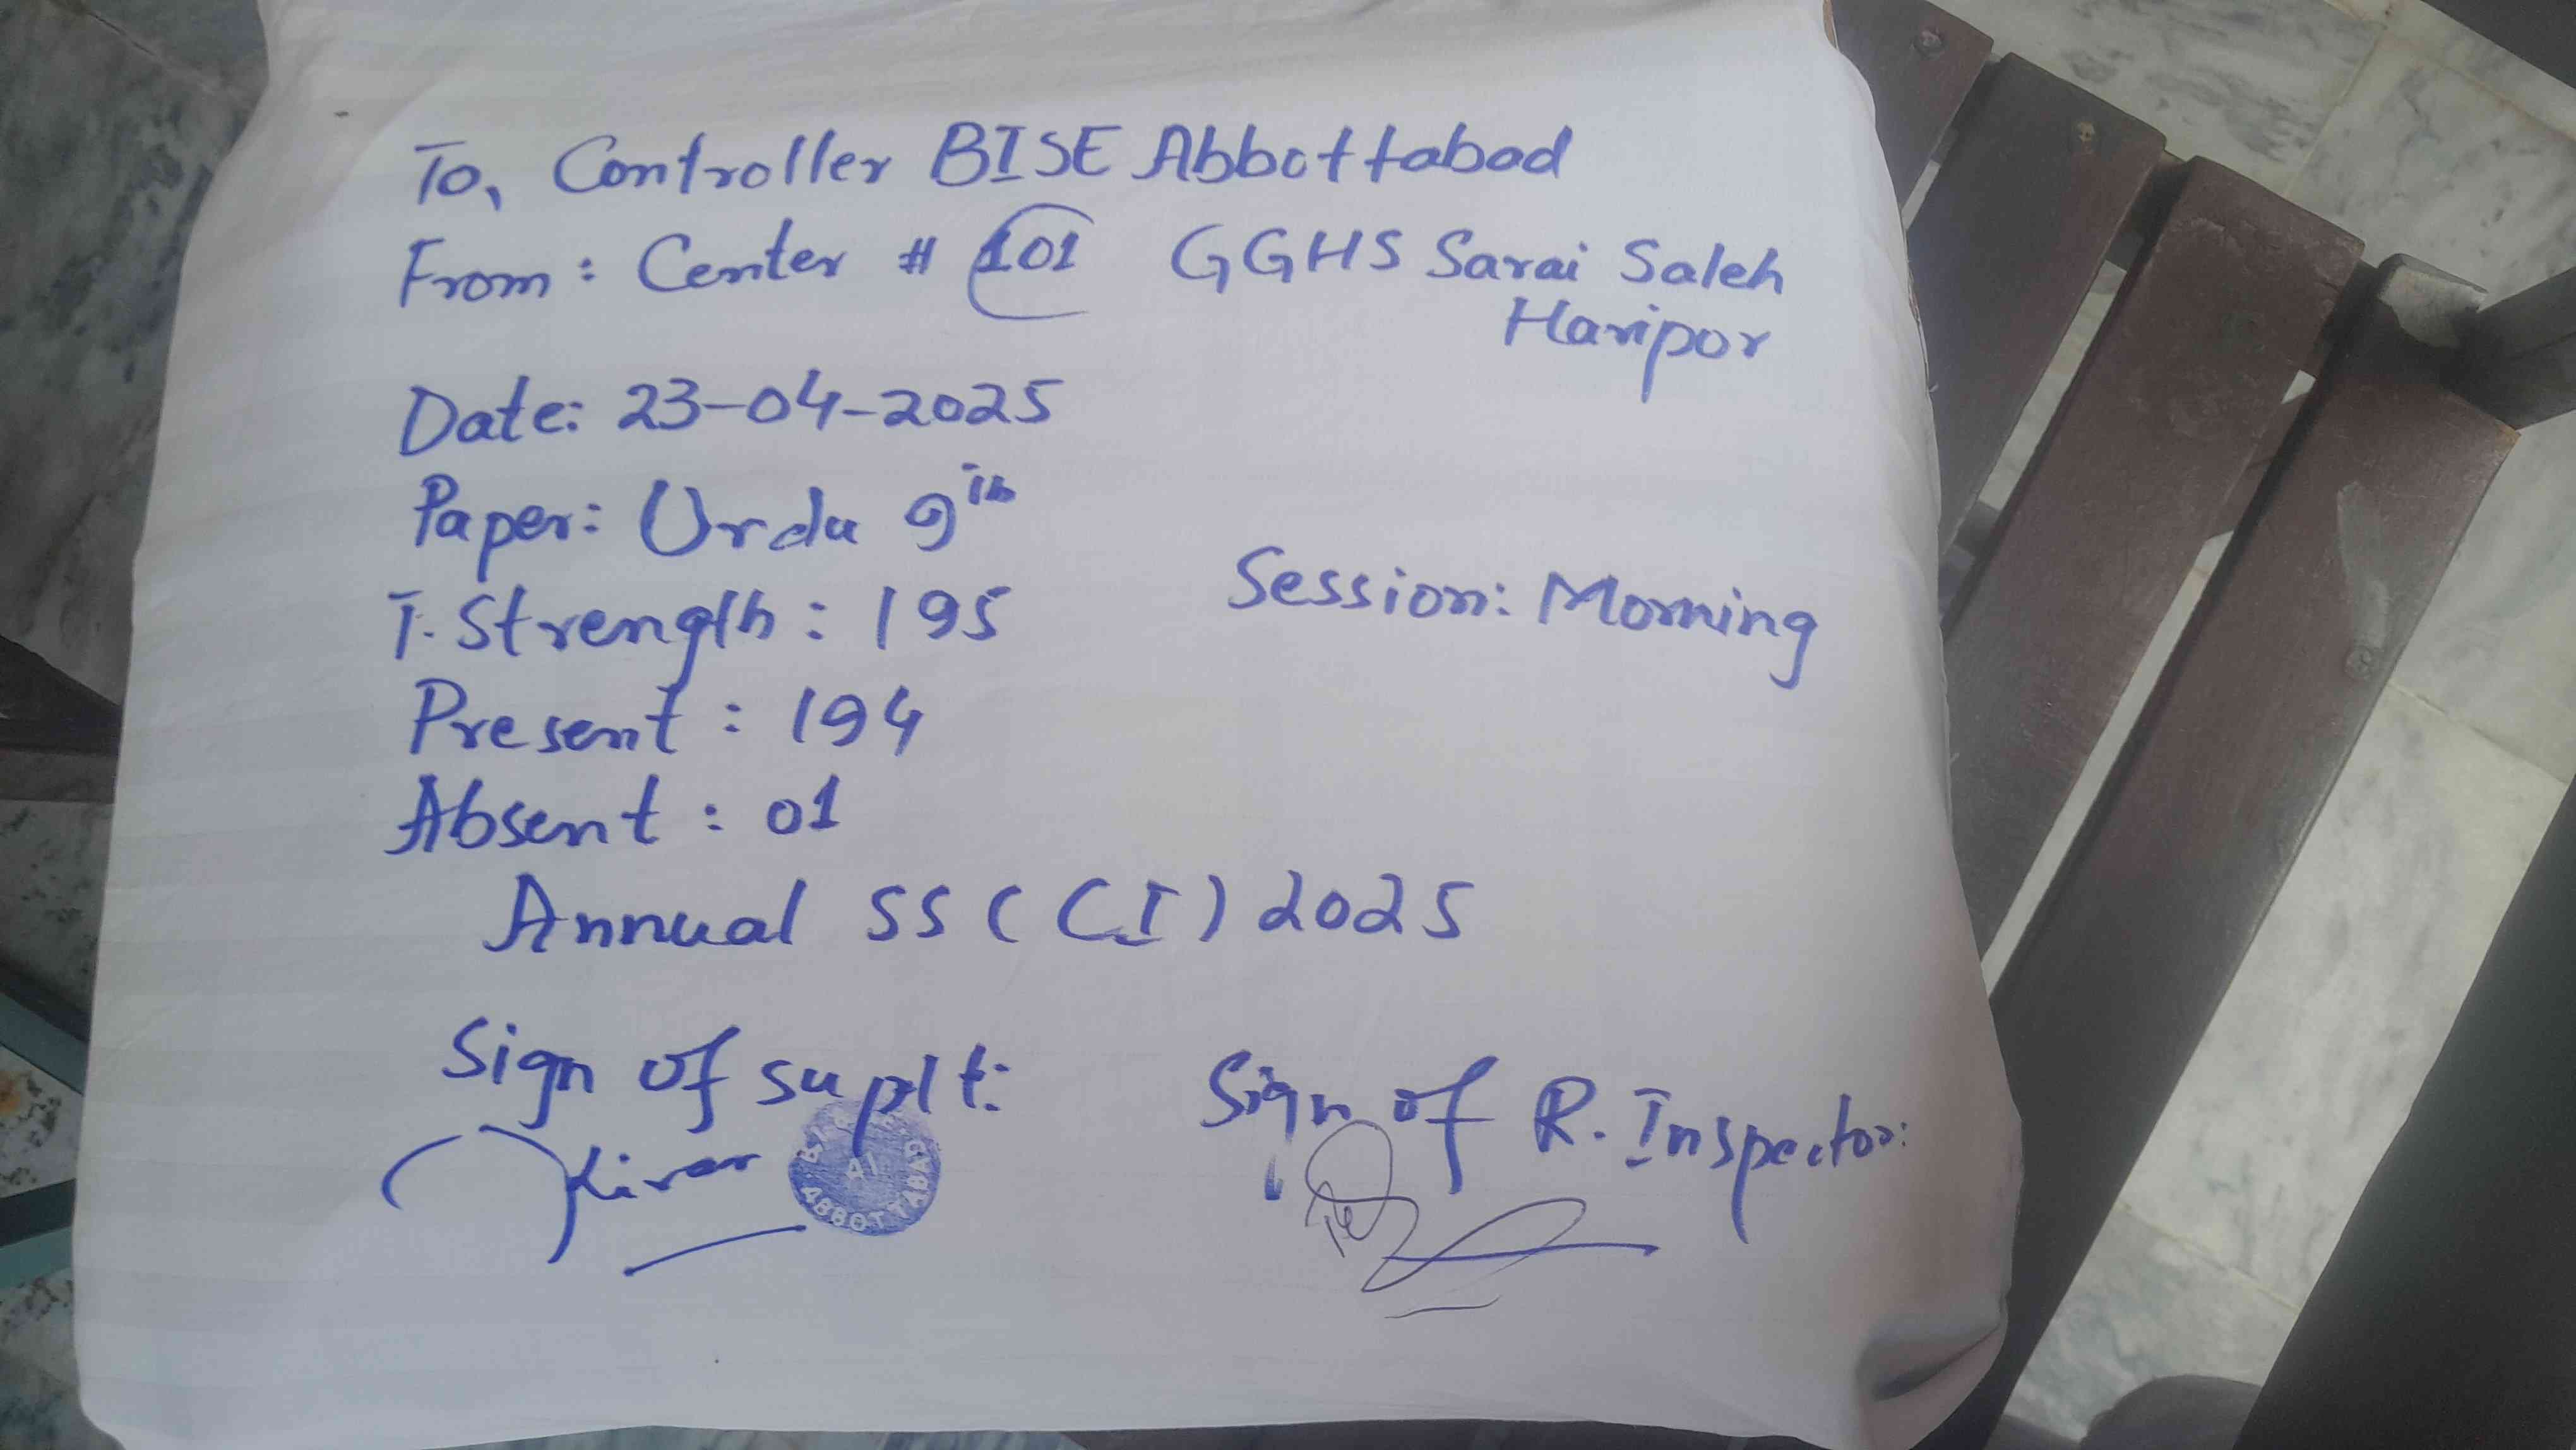 To, Controller BISE Abbottabad
From: Center # 101 GGHS Sarai Saleh
Haripor
Date: 23-04-2025
Paper: Urdu 9th
T. Strength: 195
Session: Morning
Present: 194
Absent: 01
Annual SS(CI) 2025
Sign of suplt:
Sign of R. Inspector:
Kiran
ABBOTTABAD